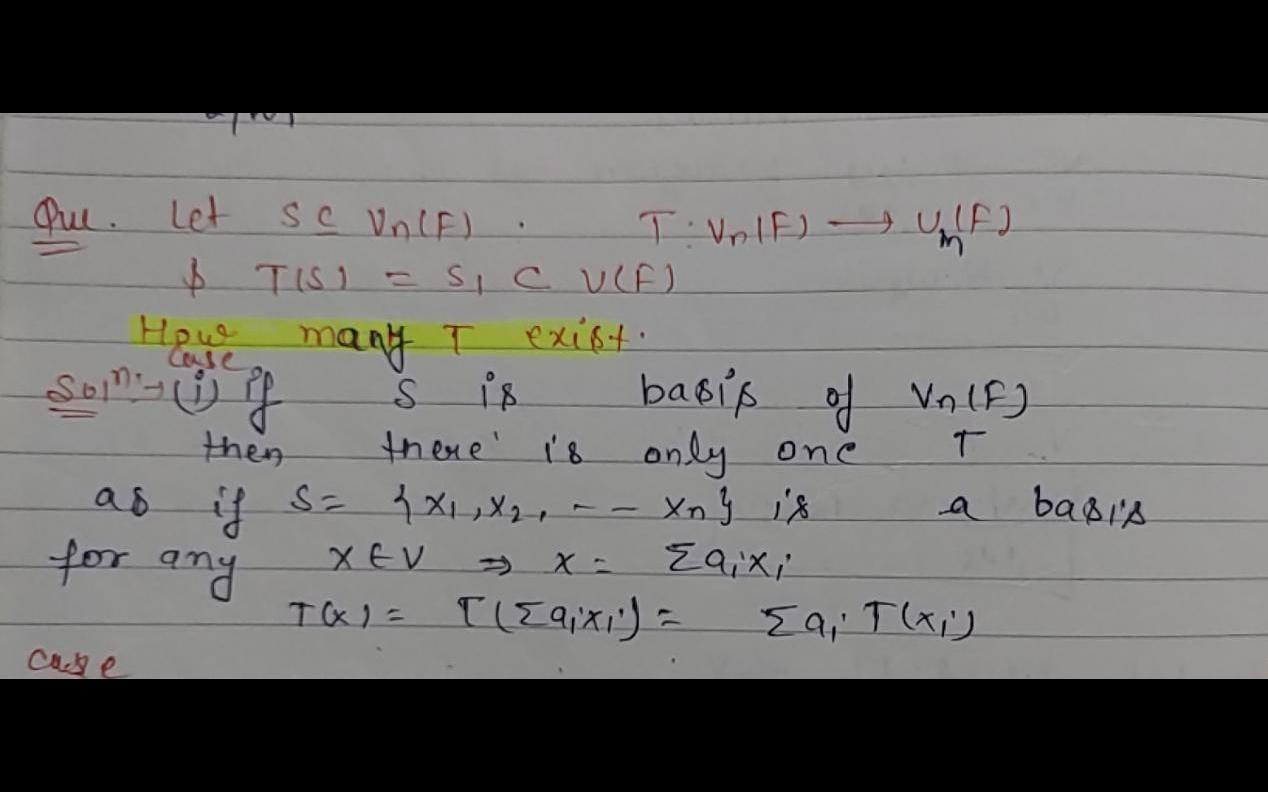 Que. Let S ⊆ Vn(F) . T: Vn(F) → Um(F)
& T(S) = S1 ⊂ U(F)
How many T exist.
Soln:→ Case (i) if S is basis of Vn(F)
then there is only one T
as if S = {x1, x2, -- xn} is a basis
for any x ∈ V ⇒ x = Σaixi
T(x) = T(Σaixi) = Σai T(xi)
case